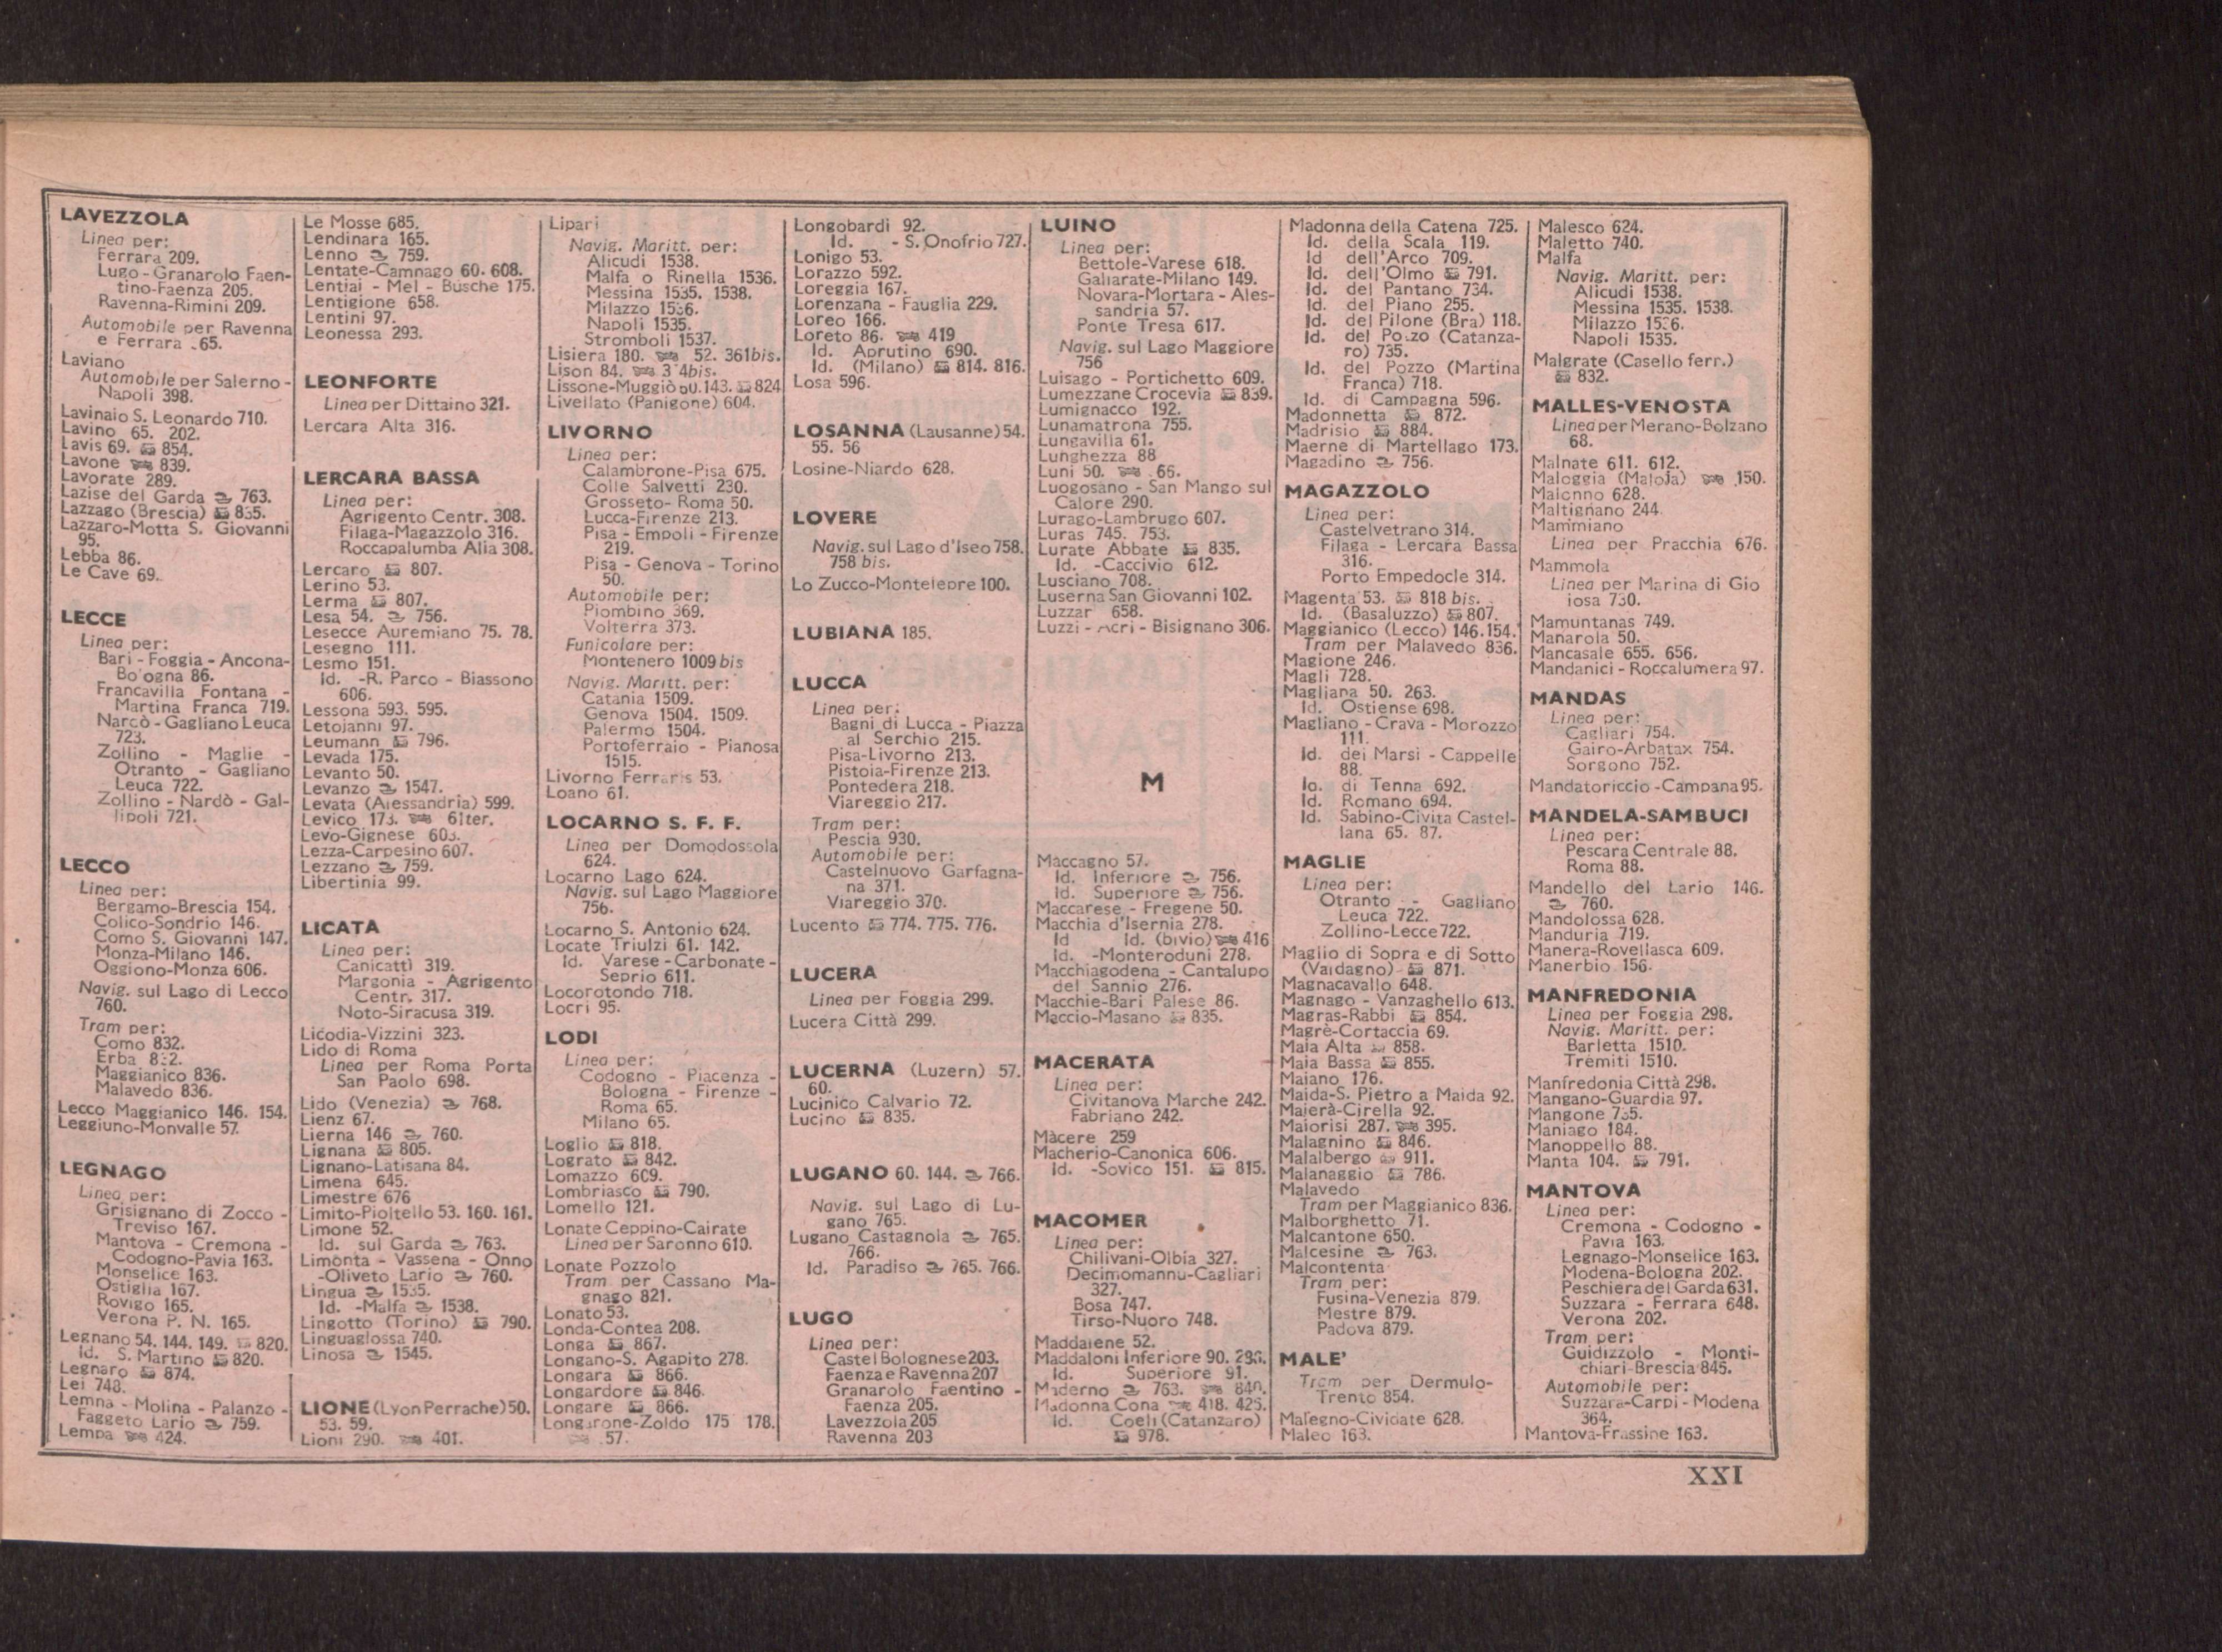 LAVEZZOLA
Linea per:
Ferrara 209.
Lugo - Granarolo Faen-
tino-Faenza 205.
Ravenna-Rimini 209.
Automobile per Ravenna
e Ferrara 65.
Laviano
Automobile per Salerno -
Napoli 398.
Lavinaio S. Leonardo 710.
Lavino 65. 202.
Lavis 69. 854.
Lavone 839.
Lavorate 289.
Lazise del Garda 763.
Lazzago (Brescia) 835.
Lazzaro-Motta S. Giovanni
95.
Lebba 86.
Le Cave 69.
LECCE
Linea per:
Bari - Foggia - Ancona-
Bologna 86.
Francavilla Fontana -
Martina Franca 719.
Narcò - Gagliano Leuca
723.
Zollino - Maglie -
Otranto - Gagliano
Leuca 722.
Zollino - Nardò - Gal-
lipoli 721.
LECCO
Linea per:
Bergamo-Brescia 154.
Colico-Sondrio 146.
Como S. Giovanni 147.
Monza-Milano 146.
Oggiono-Monza 606.
Navig. sul Lago di Lecco
760.
Tram per:
Como 832.
Erba 832.
Maggianico 836.
Malavedo 836.
Lecco Maggianico 146. 154.
Leggiuno-Monvalle 57.
LEGNAGO
Linea per:
Grisignano di Zocco -
Treviso 167.
Mantova - Cremona -
Codogno-Pavia 163.
Monselice 163.
Ostiglia 167.
Rovigo 165.
Verona P. N. 165.
Legnano 54. 144. 149. 820.
Id. S. Martino 820.
Legnaro 874.
Lei 748.
Lemna - Molina - Palanzo -
Faggeto Lario 759.
Lempa 424.
Le Mosse 685.
Lendinara 165.
Lenno 759.
Lentate-Camnago 60. 608.
Lentiai - Mel - Busche 175.
Lentigione 658.
Lentini 97.
Leonessa 293.
LEONFORTE
Linea per Dittaino 321.
Lercara Alta 316.
LERCARA BASSA
Linea per:
Agrigento Centr. 308.
Filaga-Magazzolo 316.
Roccapalumba Alia 308.
Lercaro 807.
Lerino 53.
Lerma 807.
Lesa 54. 756.
Lesecce Auremiano 75. 78.
Lesegno 111.
Lesmo 151.
Id. -R. Parco - Biassono
606.
Lessona 593. 595.
Letojanni 97.
Leumann 796.
Levada 175.
Levanto 50.
Levanzo 1547.
Levata (Alessandria) 599.
Levico 173. 61ter.
Levo-Gignese 603.
Lezza-Carpesino 607.
Lezzano 759.
Libertinia 99.
LICATA
Linea per:
Canicattì 319.
Margonia - Agrigento
Centr. 317.
Noto-Siracusa 319.
Licodia-Vizzini 323.
Lido di Roma
Linea per Roma Porta
San Paolo 698.
Lido (Venezia) 768.
Lienz 67.
Lierna 146 760.
Lignana 805.
Lignano-Latisana 84.
Limena 645.
Limestre 676
Limito-Pioltello 53. 160. 161.
Limone 52.
Id. sul Garda 763.
Limonta - Vassena - Onno
-Oliveto Lario 760.
Lingua 1535.
Id. -Malfa 1538.
Lingotto (Torino) 790.
Linguaglossa 740.
Linosa 1545.
LIONE (Lyon Perrache) 50.
53. 59.
Lioni 290. 401.
Lipari
Navig. Maritt. per:
Alicudi 1538.
Malfa o Rinella 1536.
Messina 1535. 1538.
Milazzo 1536.
Napoli 1535.
Stromboli 1537.
Lisiera 180. 52. 361bis.
Lison 84.
Lissone-Muggiò 50. 143. 824
Livellato (Panigone) 604.
LIVORNO
Linea per:
Calambrone-Pisa 675.
Colle Salvetti 230.
Grosseto- Roma 50.
Lucca-Firenze 213.
Pisa - Empoli - Firenze
219.
Pisa - Genova - Torino
50.
Automobile per:
Piombino 369.
Volterra 373.
Funicolare per:
Montenero 1009 bis
Navig. Maritt. per:
Catania 1509.
Genova 1504. 1509.
Palermo 1504.
Portoferraio - Pianosa
1515.
Livorno Ferraris 53.
Loano 61.
LOCARNO S. F. F.
Linea per Domodossola
624.
Locarno Lago 624.
Navig. sul Lago Maggiore
756.
Locarno S. Antonio 624.
Locate Triulzi 61. 142.
Id. Varese - Carbonate -
Seprio 611.
Locorotondo 718.
Locri 95.
LODI
Linea per:
Codogno - Piacenza -
Bologna - Firenze -
Roma 65.
Milano 65.
Loglio 818.
Lograto 842.
Lomazzo 609.
Lombriasco 790.
Lomello 121.
Lonate Ceppino-Cairate
Linea per Saronno 610.
Lonate Pozzolo
Tram per Cassano Ma-
gnago 821.
Lonato 53.
Londa-Contea 208.
Longa 867.
Longano-S. Agapito 278.
Longara 866.
Longardore 846.
Longare 866.
Longarone-Zoldo 175 178.
57.
Longobardi 92.
Id. - S. Onofrio 727.
Lonigo 53.
Lorazzo 592.
Loreggia 167.
Lorenzana - Fauglia 229.
Loreo 166.
Loreto 86. 419
Id. Aprutino 690.
Id. (Milano) 814. 816.
Losa 596.
LOSANNA (Lausanne) 54.
55. 56
Losine-Niardo 628.
LOVERE
Navig. sul Lago d'Iseo 758.
758 bis.
Lo Zucco-Montelepre 100.
LUBIANA 185.
LUCCA
Linea per:
Bagni di Lucca - Piazza
al Serchio 215.
Pisa-Livorno 213.
Pistoia-Firenze 213.
Pontedera 218.
Viareggio 217.
Tram per:
Pescia 930.
Automobile per:
Castelnuovo Garfagna-
na 371.
Viareggio 370.
Lucento 774. 775. 776.
LUCERA
Linea per Foggia 299.
Lucera Città 299.
LUCERNA (Luzern) 57.
60.
Lucinico Calvario 72.
Lucino 835.
LUGANO 60. 144. 766.
Navig. sul Lago di Lu-
gano 765.
Lugano Castagnola 765.
766.
Id. Paradiso 765. 766.
LUGO
Linea per:
Castel Bolognese 203.
Faenza e Ravenna 207
Granarolo Faentino -
Faenza 205.
Lavezzola 205
Ravenna 203
LUINO
Linea per:
Bettole-Varese 618.
Gallarate-Milano 149.
Novara-Mortara - Ales-
sandria 57.
Ponte Tresa 617.
Navig. sul Lago Maggiore
756
Luisago - Portichetto 609.
Lumezzane Crocevia 839.
Lumignacco 192.
Lunamatrona 755.
Lungavilla 61.
Lunghezza 88
Luni 50. 66.
Luogosano - San Mango sul
Calore 290.
Lurago-Lambrugo 607.
Luras 745. 753.
Lurate Abbate 835.
Id. -Caccivio 612.
Lusciano 708.
Luserna San Giovanni 102.
Luzzar 658.
Luzzi - Acri - Bisignano 306.
M
Maccagno 57.
Id. Inferiore 756.
Id. Superiore 756.
Maccarese - Fregene 50.
Macchia d'Isernia 278.
Id Id. (bivio) 416
Id. -Monteroduni 278.
Macchiagodena - Cantalupo
del Sannio 276.
Macchie-Bari Palese 86.
Maccio-Masano 835.
MACERATA
Linea per:
Civitanova Marche 242.
Fabriano 242.
Màcere 259
Macherio-Canonica 606.
Id. -Sovico 151. 815.
MACOMER
Linea per:
Chilivani-Olbia 327.
Decimomannu-Cagliari
327.
Bosa 747.
Tirso-Nuoro 748.
Maddalene 52.
Maddaloni Inferiore 90.
Id. Superiore 91.
Maderno 763. 840.
Madonna Cona 418. 425.
Id. Coeli (Catanzaro)
978.
Madonna della Catena 725.
Id. della Scala 119.
Id dell'Arco 709.
Id. dell'Olmo 791.
Id. del Pantano 734.
Id. del Piano 255.
Id. del Pilone (Bra) 118.
Id. del Pozzo (Catanza-
ro) 735.
Id. del Pozzo (Martina
Franca) 718.
Id. di Campagna 596.
Madonnetta 872.
Madrisio 884.
Maerne di Martellago 173.
Magadino 756.
MAGAZZOLO
Linea per:
Castelvetrano 314.
Filaga - Lercara Bassa
316.
Porto Empedocle 314.
Magenta 53. 818 bis.
Id. (Basaluzzo) 807.
Maggianico (Lecco) 146. 154.
Tram per Malavedo 836.
Magione 246.
Magli 728.
Magliana 50. 263.
Id. Ostiense 698.
Magliano - Crava - Morozzo
111.
Id. dei Marsi - Cappelle
88.
Id. di Tenna 692.
Id. Romano 694.
Id. Sabino-Civita Castel-
lana 65. 87.
MAGLIE
Linea per:
Otranto - Gagliano
Leuca 722.
Zollino-Lecce 722.
Maglio di Sopra e di Sotto
(Valdagno) 871.
Magnacavallo 648.
Magnago - Vanzaghello 613.
Magras-Rabbi 854.
Magrè-Cortaccia 69.
Maia Alta 858.
Maia Bassa 855.
Maiano 176.
Maida-S. Pietro a Maida 92.
Maierà-Cirella 92.
Maiorisi 287. 395.
Malagnino 846.
Malalbergo 911.
Malanaggio 786.
Malavedo
Tram per Maggianico 836.
Malborghetto 71.
Malcantone 650.
Malcesine 763.
Malcontenta
Tram per:
Fusina-Venezia 879.
Mestre 879.
Padova 879.
MALE'
Tram per Dermulo-
Trento 854.
Malegno-Cividate 628.
Maleo 163.
Malesco 624.
Maletto 740.
Malfa
Navig. Maritt. per:
Alicudi 1538.
Messina 1535. 1538.
Milazzo 1536.
Napoli 1535.
Malgrate (Casello ferr.)
832.
MALLES-VENOSTA
Linea per Merano-Bolzano
68.
Malnate 611. 612.
Maloggia (Maloja) 150.
Malonno 628.
Maltignano 244.
Mammiano
Linea per Pracchia 676.
Mammola
Linea per Marina di Gio
iosa 730.
Mamuntanas 749.
Manarola 50.
Mancasale 655. 656.
Mandanici - Roccalumera 97.
MANDAS
Linea per:
Cagliari 754.
Gairo-Arbatax 754.
Sorgono 752.
Mandatoriccio -Campana 95.
MANDELA-SAMBUCI
Linea per:
Pescara Centrale 88.
Roma 88.
Mandello del Lario 146.
760.
Mandolossa 628.
Manduria 719.
Manera-Rovellasca 609.
Manerbio 156.
MANFREDONIA
Linea per Foggia 298.
Navig. Maritt. per:
Barletta 1510.
Tremiti 1510.
Manfredonia Città 298.
Mangano-Guardia 97.
Mangone 735.
Maniago 184.
Manoppello 88.
Manta 104. 791.
MANTOVA
Linea per:
Cremona - Codogno -
Pavia 163.
Legnago-Monselice 163.
Modena-Bologna 202.
Peschiera del Garda 631.
Suzzara - Ferrara 648.
Verona 202.
Tram per:
Guidizzolo - Monti-
chiari-Brescia 845.
Automobile per:
Suzzara-Carpi - Modena
364.
Mantova-Frassine 163.
XXI